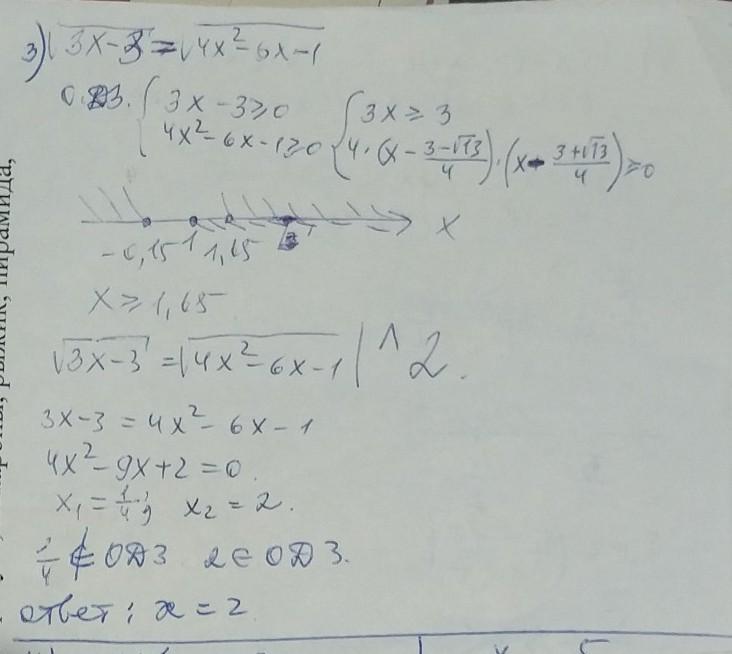 3) √3x-3 = √4x²-6x-1
О.Д.З. { 3x-3≥0 { 3x ≥ 3
4x²-6x-1≥0 4·(x - (3-√13)/4)·(x - (3+√13)/4) ≥0
-0,15 1 1,65 x
x ≥ 1,65
√3x-3 = √4x²-6x-1 | ^ 2.
3x-3 = 4x²-6x-1
4x²-9x+2=0.
x₁=1/4; x₂=2.
1/4 ∉ ОДЗ 2∈ ОДЗ.
ответ: x=2
рыжик, пирамида,